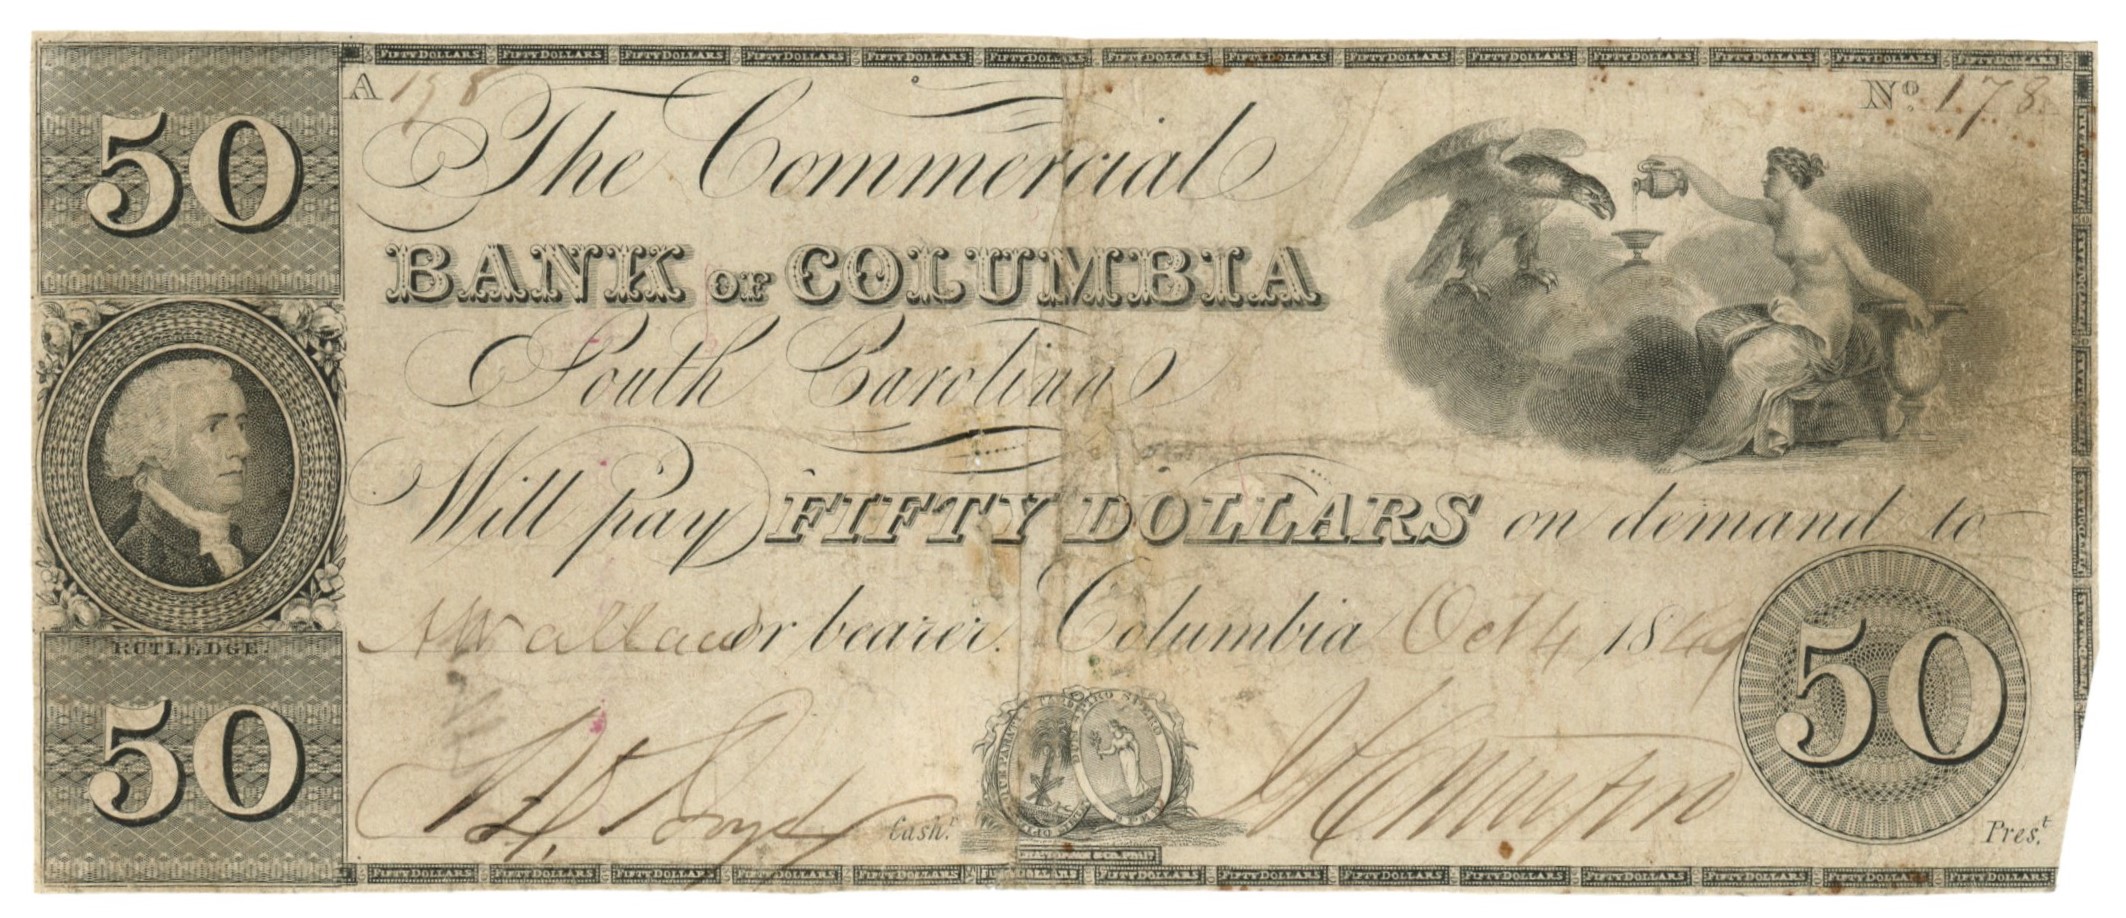 FIFTY DOLLARS FIFTY DOLLARS FIFTY DOLLARS FIFTY DOLLARS FIFTY DOLLARS FIFTY DOLLARS FIFTY DOLLARS FIFTY DOLLARS FIFTY DOLLARS FIFTY DOLLARS FIFTY DOLLARS FIFTY DOLLARS FIFTY DOLLARS FIFTY DOLLARS
A 178
No. 178
50
The Commercial
BANK OF COLUMBIA
South Carolina
Will pay FIFTY DOLLARS on demand to
A Wallace or bearer. Columbia Oct 4 1849
RUTLEDGE.
50
50
Cash.r
Pres.t
DUM SPIRO SPERO
SPES
FIFTY DOLLARS FIFTY DOLLARS FIFTY DOLLARS FIFTY DOLLARS FIFTY DOLLARS FIFTY DOLLARS FIFTY DOLLARS FIFTY DOLLARS FIFTY DOLLARS FIFTY DOLLARS FIFTY DOLLARS FIFTY DOLLARS FIFTY DOLLARS FIFTY DOLLARS